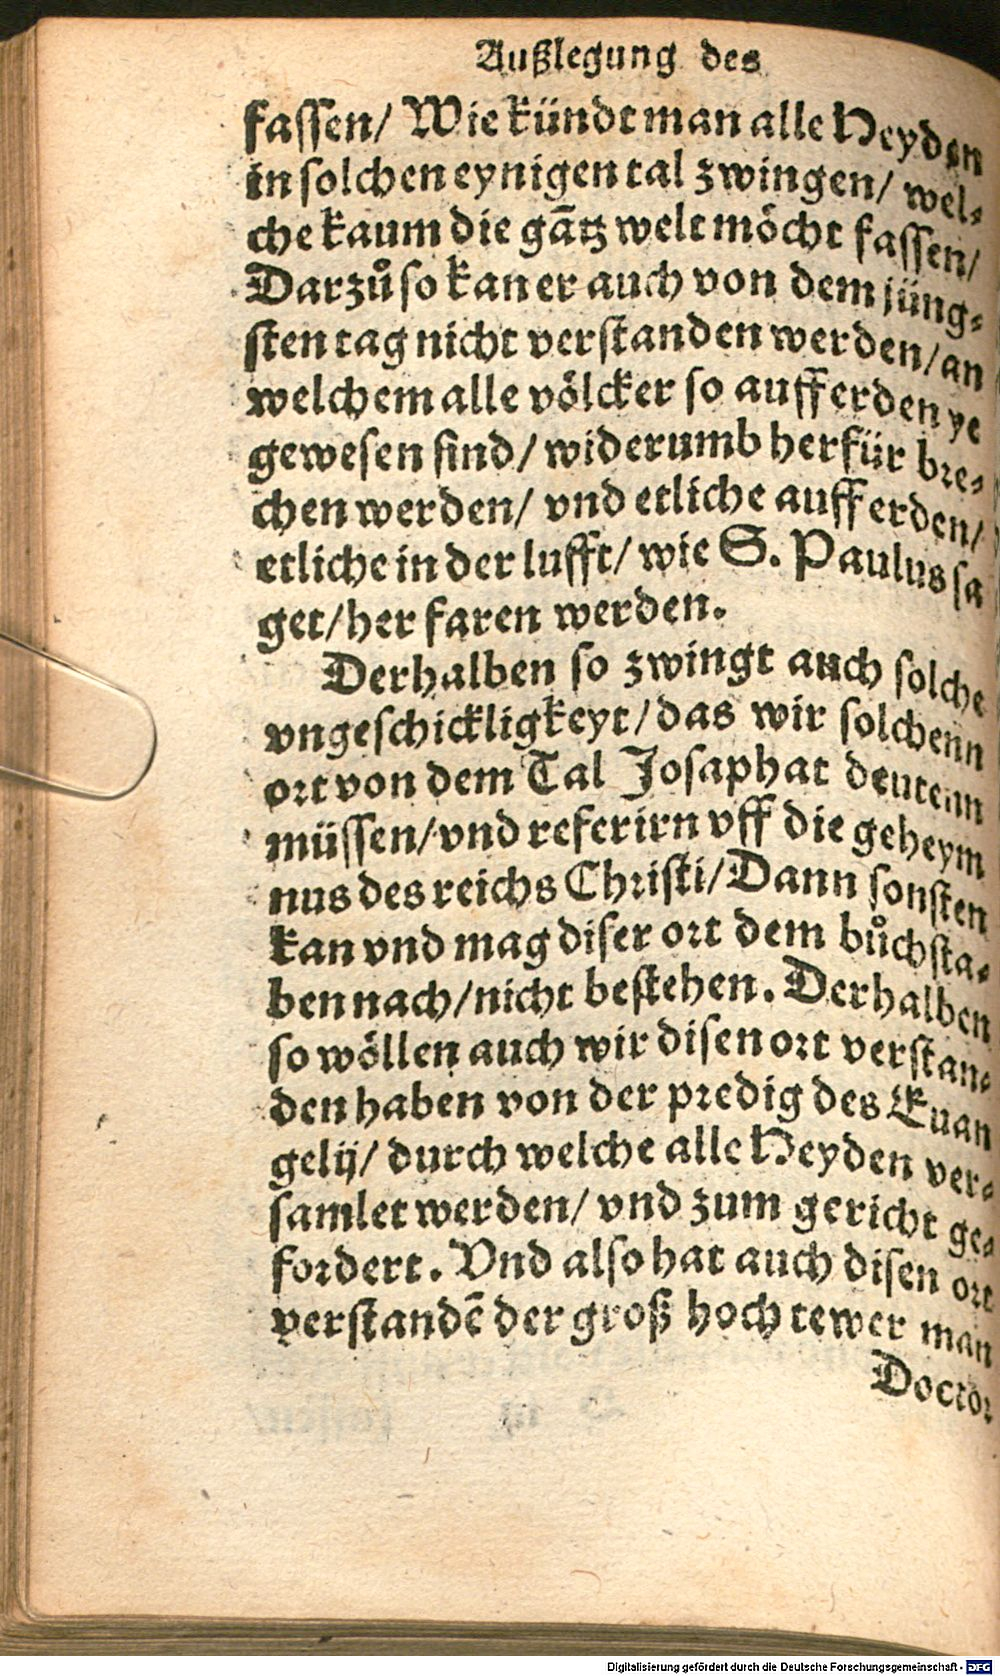 Außlegung des
fassen/ Wie kündt man alle Heyden
in solchen eynigen tal zwingen/ wel⸗
che kaum die gātz welt möcht fassen/
Darzů so kan er auch von dem jüng⸗
sten tag nicht verstanden werden/ an
welchem alle völcker so auff erden ye
gewesen sind/ widerumb herfür bre⸗
chen werden/ vnd etliche auff erden/
etliche in der lufft/ wie S. Paulus sa
get/ her faren werden.
Derhalben so zwingt auch solche
vngeschickligkeyt/ das wir solchenn
ort von dem Tal Josaphat deutenn
müssen/ vnd referirn vff die geheym
nus des reichs Christi/ Dann sonsten
kan vnd mag diser ort dem bůchsta⸗
ben nach/ nicht bestehen. Derhalben
so wöllen auch wir disen ort verstan⸗
den haben von der predig des Euan
gelij/ durch welche alle Heyden ver⸗
samlet werden/ vnd zum gericht ge⸗
fordert. Vnd also hat auch disen ort
verstandē der groß hoch tewer man
Doctor
Digitalisierung gefördert durch die Deutsche Forschungsgemeinschaft - DFG